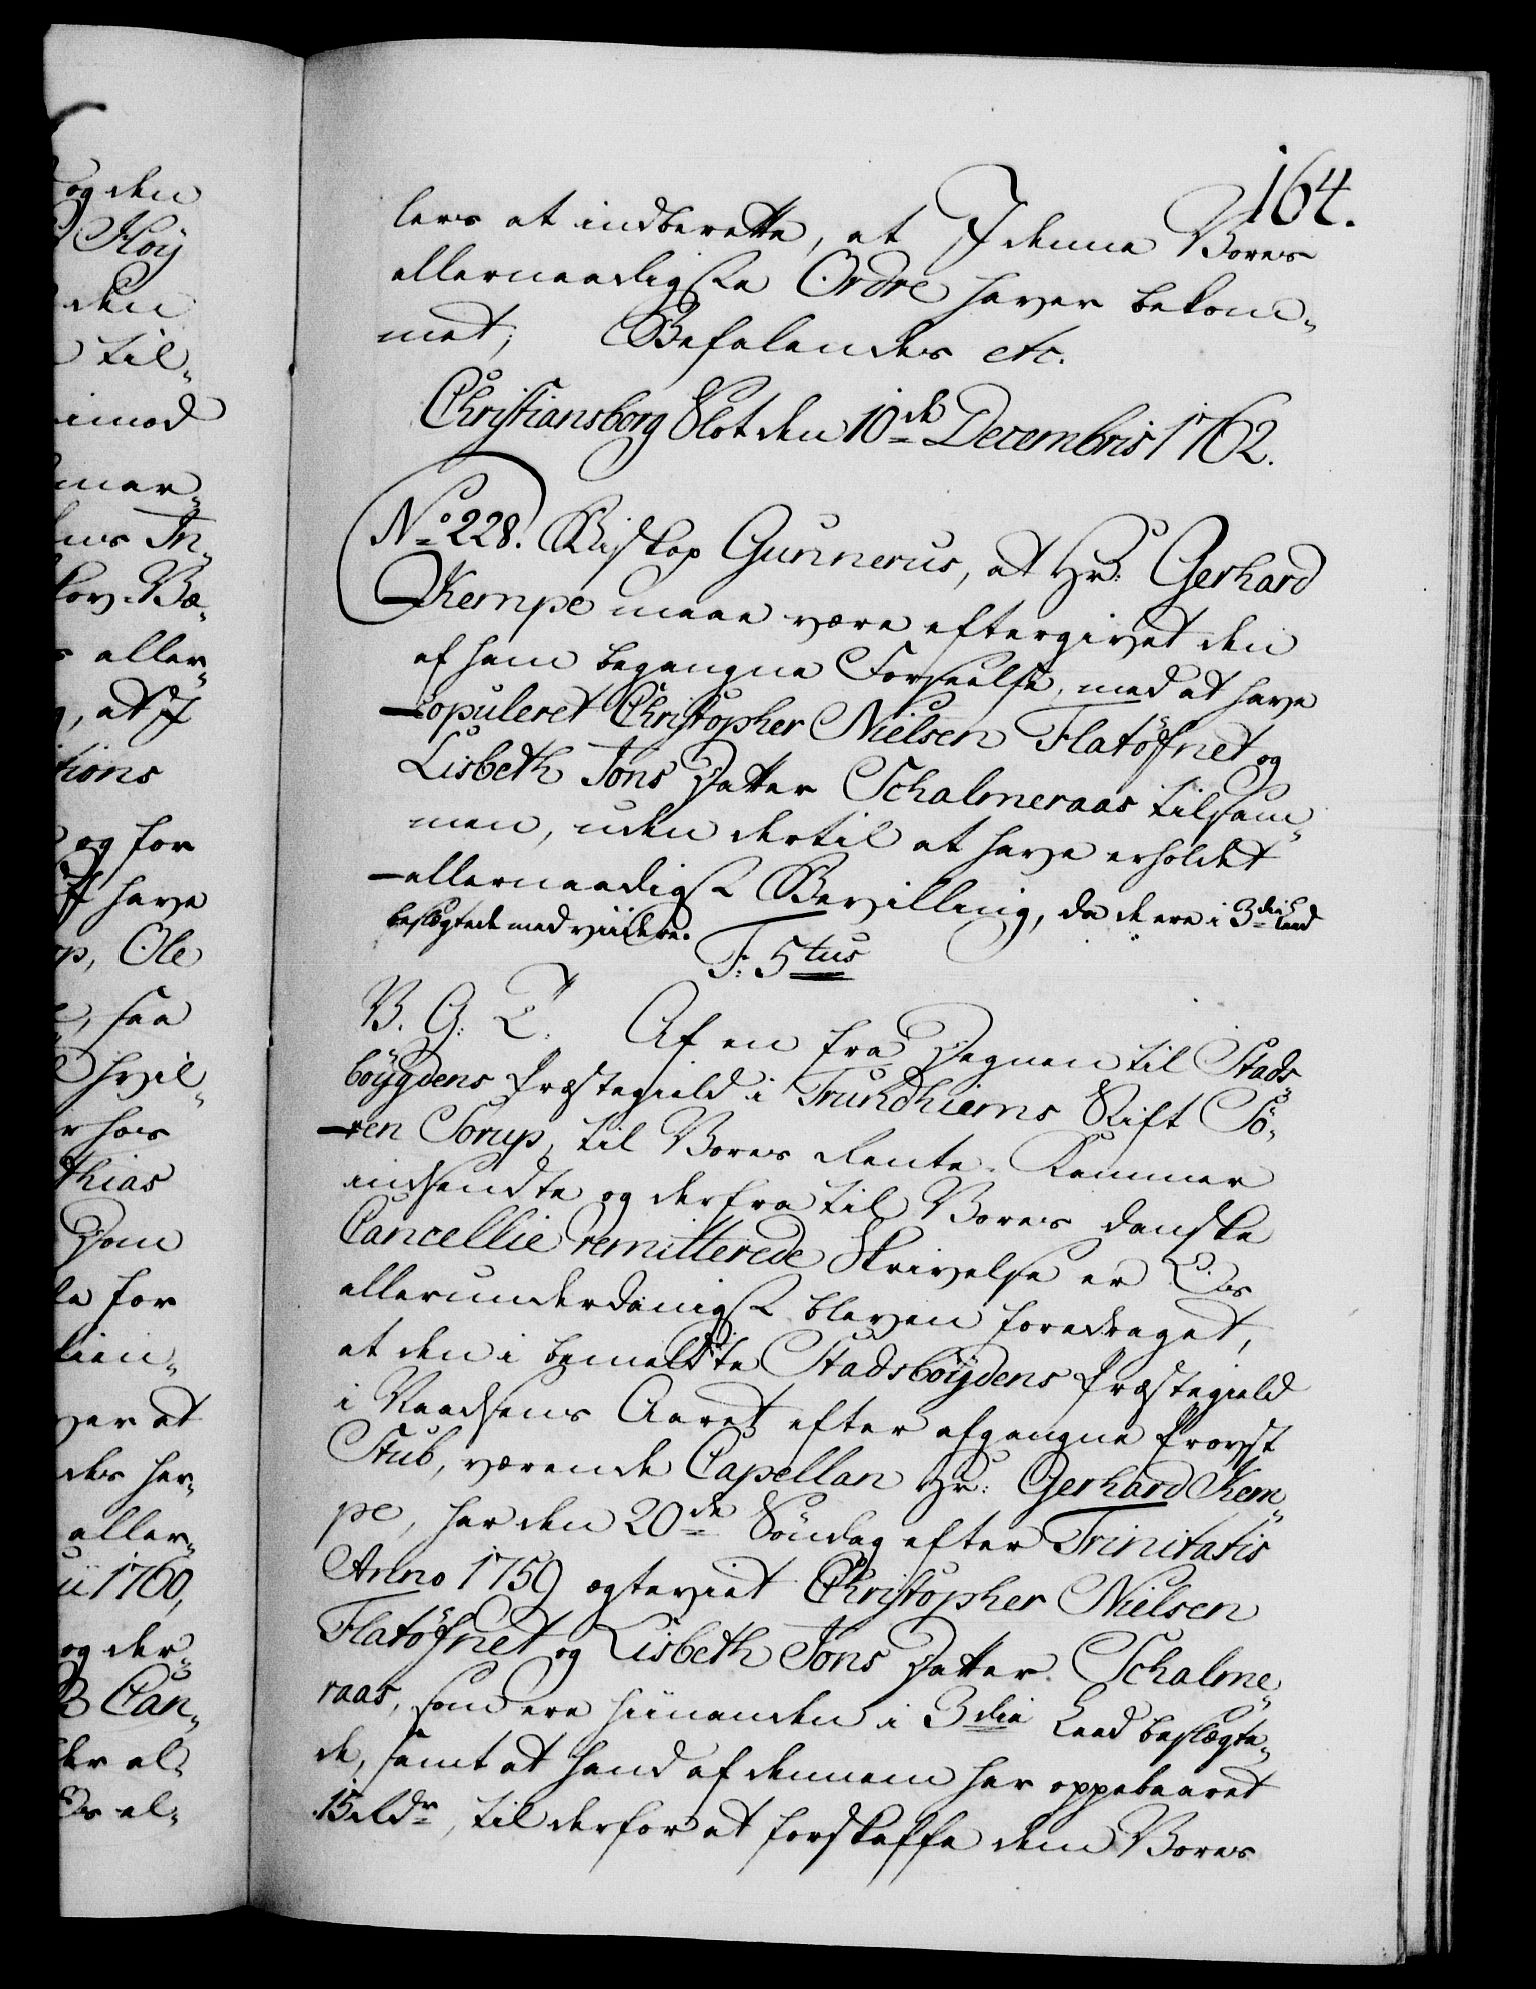 164.
lers at indberette, at I denne Vores
allernaadigste Ordre haver bekom-
met; Befalendes etc.
Christiansborg Slot den 10de Decembris 1762.
No 228. Biskop Gunnerus, at Hr: Gerhard
Kempe maae være eftergivet den
af ham begangne Forseelse, med at have
copuleret Christopher Nielsen Flatöfnet og
Lisbeth Jons Datter Schalmeraas tilsam-
men, uden dertil at have erholdet
allernaadigst Bevilling, da de ere i 3die Leed
beslægtede med viidere.
F: 5tus
V. G: T. Af en fra Degnen til Stads-
böygdens Præstegield i Trundhiems Stift Sö-
ren Sorup, til Vores Rente-Kammer
indsendte og derfra til Vores danske
Cancellie remitterede Skrivelse er Os
allerunderdanigst bleven foredraget,
at den i bemeldte Stadsböygdens Præstegield
i Naadsens Aaret efter afgangne Provst
Stub, værende Capellan Hr: Gerhard Kem-
pe, har den 20de Söndag efter Trinitatis
Anno 1759 ægteviet Christopher Nielsen
Flatöfnet og Lisbeth Jons Datter Schalme-
raas, som ere hinanden i 3die Leed beslægte-
de, samt at hand af dennem har oppebaaret
15 Rdr, til derfor at forskaffe dem Vores
og den
Höy
den
til-
imod
In-
Bæ-
aller-
, at I
tions
og for
I have
Ole
, saa
hvil-
hos
thias
Dom
for
at
des her-
aller-
ii 1760,
og der-
Can-
al-